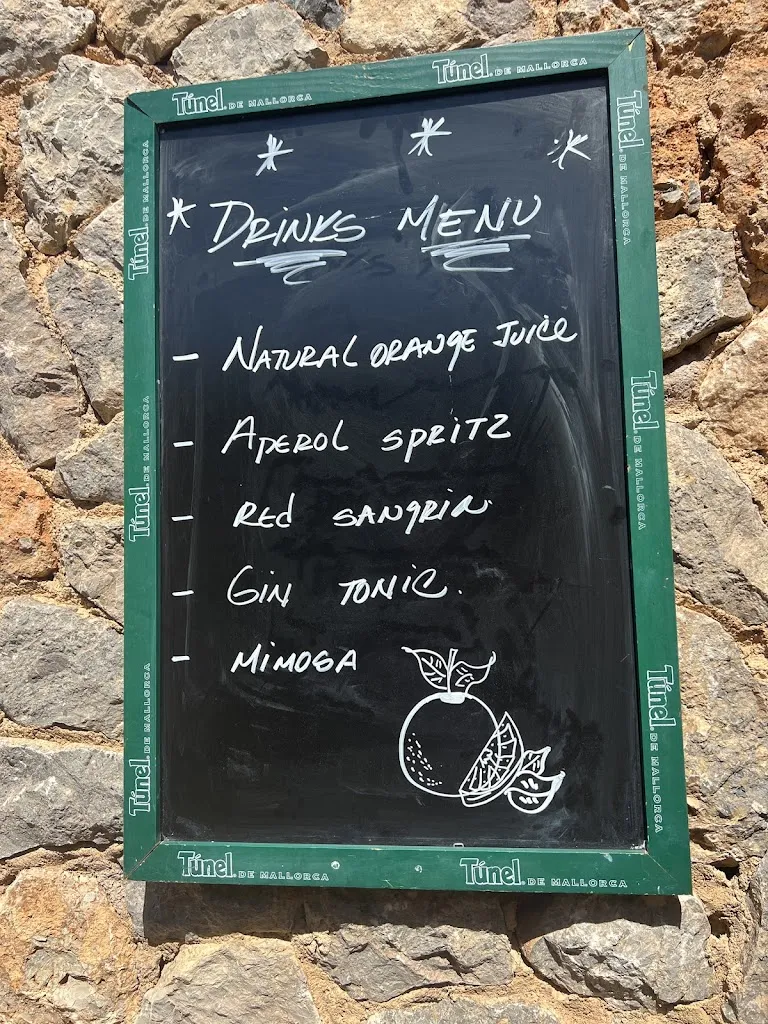 Túnel DE MALLORCA
Túnel DE MALLORCA
* DRINKS MENU
— NATURAL ORANGE JUICE
— APEROL SPRITZ
— RED SANGRIA
— GIN TONIC.
— MIMOSA
Túnel DE MALLORCA
Túnel DE MALLORCA
Túnel DE MALLORCA
Túnel DE MALLORCA
Túnel DE MALLORCA
Túnel DE MALLORCA
Túnel DE MALLORCA
Túnel DE MALLORCA